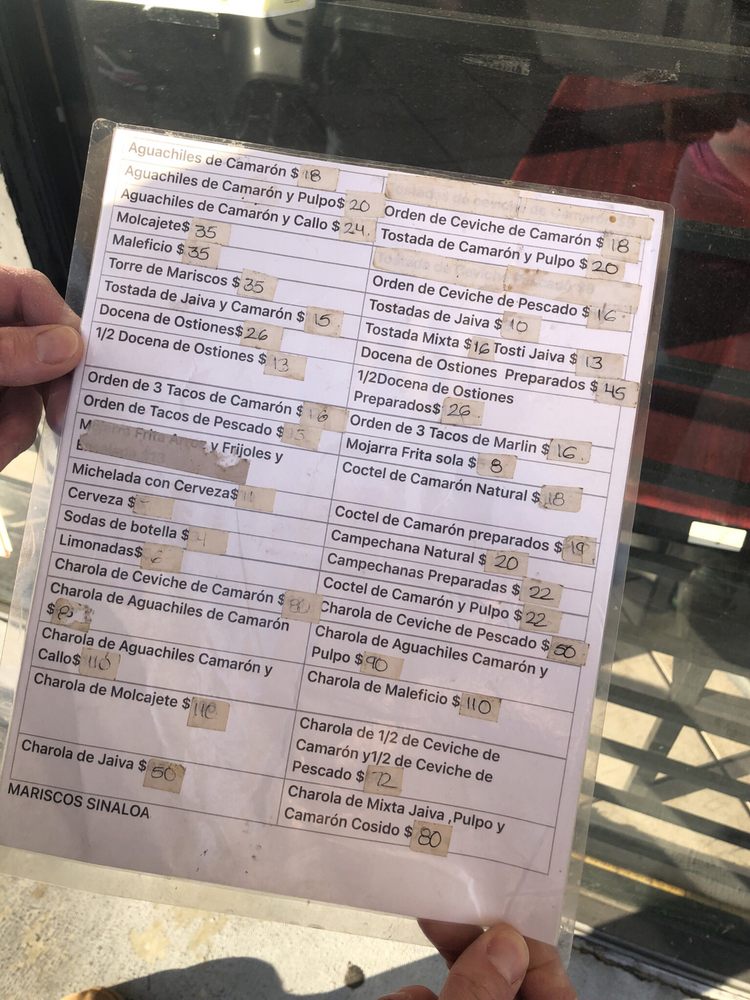 Aguachiles de Camarón $ 18
Aguachiles de Camarón y Pulpo$ 20
Aguachiles de Camarón y Callo $ 24
Molcajete$ 35
Maleficio $ 35
Torre de Mariscos $ 35
Tostada de Jaiva y Camarón $ 15
Docena de Ostiones$ 26
1/2 Docena de Ostiones $ 13
Orden de 3 Tacos de Camarón $ 16
Orden de Tacos de Pescado $
Mojarra Frita Arroz y Frijoles y
Michelada con Cerveza$ 11
Cerveza $
Sodas de botella $ 4
Limonadas$ 6
Charola de Ceviche de Camarón $ 80
Charola de Aguachiles de Camarón
$
Charola de Aguachiles Camarón y
Callo$ 110
Charola de Molcajete $ 110
Charola de Jaiva $ 50
MARISCOS SINALOA
Orden de Ceviche de Camarón $ 18
Tostada de Camarón y Pulpo $ 20
Orden de Ceviche de Pescado $ 16
Tostadas de Jaiva $ 10
Tostada Mixta $ 16 Tosti Jaiva $ 13
Docena de Ostiones Preparados $ 45
1/2Docena de Ostiones
Preparados$ 26
Orden de 3 Tacos de Marlin $ 16
Mojarra Frita sola $ 8
Coctel de Camarón Natural $ 18
Coctel de Camarón preparados $ 19
Campechana Natural $ 20
Campechanas Preparadas $ 22
Coctel de Camarón y Pulpo $ 22
Charola de Ceviche de Pescado $ 50
Charola de Aguachiles Camarón y
Pulpo $ 90
Charola de Maleficio $ 110
Charola de 1/2 de Ceviche de
Camarón y1/2 de Ceviche de
Pescado $ 72
Charola de Mixta Jaiva ,Pulpo y
Camarón Cosido $ 80